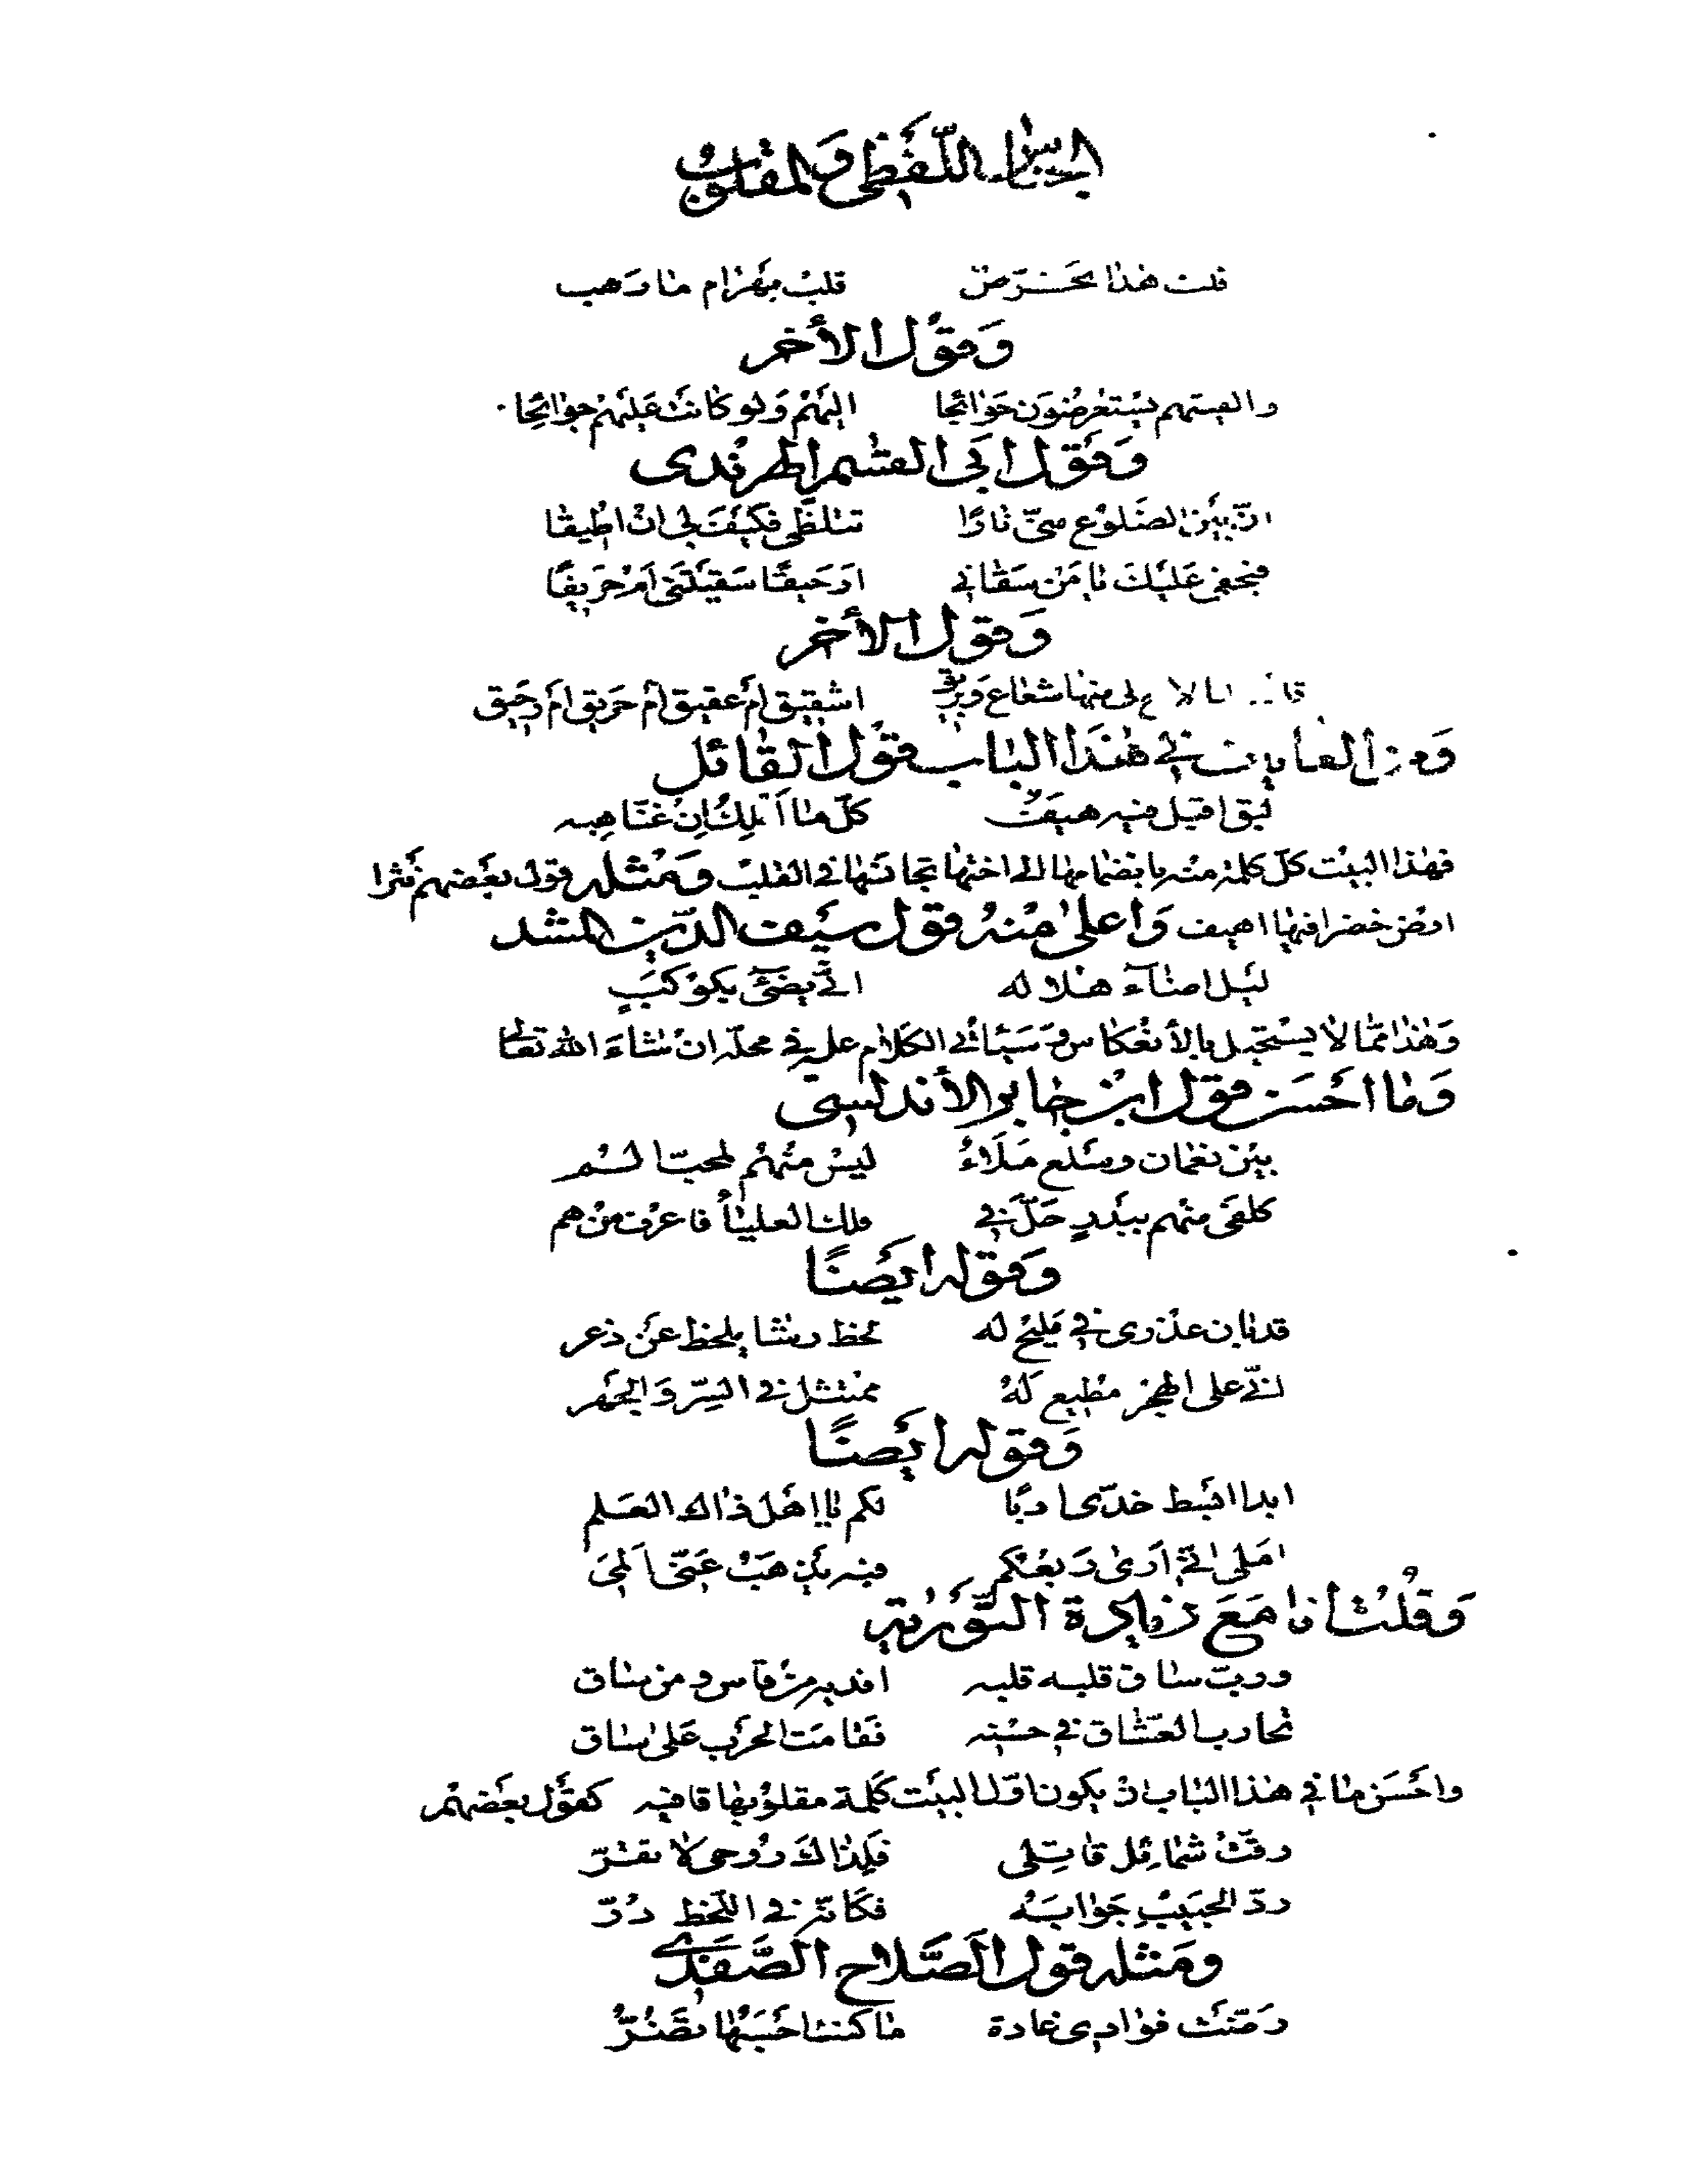 الجناس اللّفظى والمقلوب
قلت هذا تحسّر من قلب بهرام ما رهب
وَقول الأخر
والفيتهم يستعرضون حَوائجا اليهم ولو كانت عليهم جوائحا
وَقول ابى القسم المرندى
انّ بين الضلوع منّى نارًا تتلظّى فكيف لى ان اطيقا
فبحقى عليك يا من سقانى ارَحيقًا سقيتنى ام حريقًا
وَقول الأخر
لى منها شعاع وبريق اشقيق ام عقيق ام حريق ام رحيق
وَمن الغايات فى هذا الباب قول القائل
لبق اقبل فيه هيف كلّ ما املك ان غنّا هبه
فهذا البيت كلّ كلمة منه بانضمامها الى اختها تجانسها فى القلب وَمثله قول بعضهم نثرا
ارض خضرا فيها اهيف وَاعلى منه قول سيف الدّين المشد
ليل اضاء هلاله انّى يضئ بكوكب
وَهذا ممّا لا يستحيل بالأنعكاس وسيأتى الكلام عليه فى محلّه ان شاء الله تعالى
وَما احسن قول ابن جابر الأندلسى
بين نعمان وسلع ملاء ليس منهم لمحبّ السم
كلفى منهم ببدر حلّ فى ملك العلياء فاعرف من هم
وَقوله ايضًا
قد بان عذرى فى مليح له لحظ رشا يلحظ عن ذعر
لنّى على الهجر مطيع له ممتثل فى السّرّ وَالجهر
وَقوله ايضًا
ابدا ابسط خدّى ادبا لكم يا اهل ذاك العلم
املى انّى ارى ربعكم فبه يذهب عنّى المى
وَقلت انا مَعَ زيادة التّورية
وربّ ساق قلبه قلبه افديه من قاس ومن ساق
تحارب العشّاق فى حسنه فقامت الحرب على ساق
واحسن ما فى هذا الباب ان يكون اوّل البيت كلمة مقلوبها قافيه كقول بعضهم
رقّت شمائل قاتلى فلذاك روحى لا تقرّ
ردّ الحبيب جوابه فكانّه فى اللّحظ درّ
ومثله قول الصّلاح الصّفدى
رضّت فؤادى غادة ما كنت احسبها تضرّ